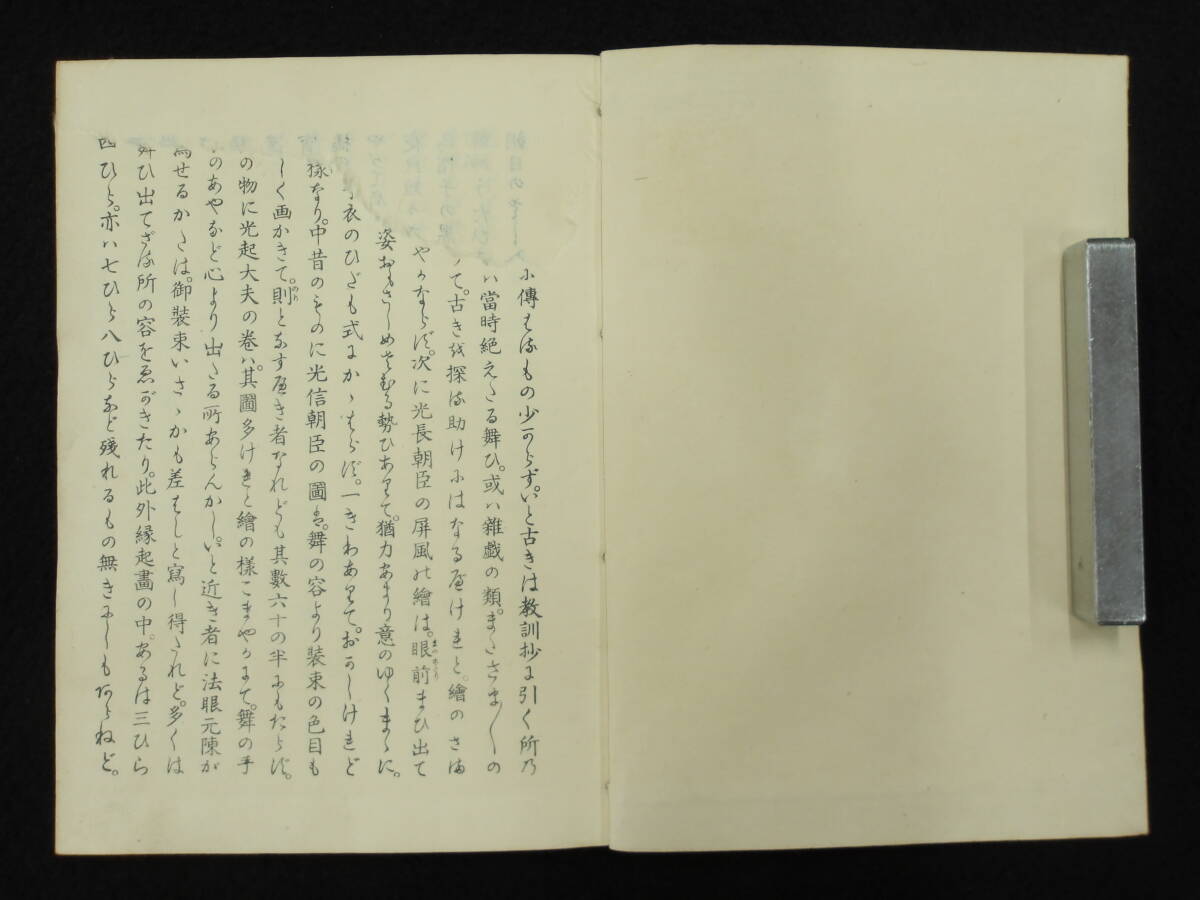 傳はるもの少からず。いと古きは教訓抄に引く所乃
ハ當時絶えたる舞ひ。或ハ雜戯の類。またさま〲の
て。古きを探る助けにはなるべけれど。繪のさま
やかならず。次に光長朝臣の屏風の繪は。眼前まひ出て
姿おもさしめさむる勢ひありて。猶力あまり意のゆくまゝに。
衣のひだも式にかゝはらず。一きわありて。おかしけれど
なり。中昔のものに光信朝臣の圖は。舞の容より装束の色目も
しく画かきて。則となすべき者なれども其數六十の半にもたらず。
の物に光起大夫の卷ハ。其圖多けれど繪の様こまやかにて。舞の手
のあやなど心より出たる所あらんかし。いと近き者に法眼元陳が
せるかたは。御装束いさゝかも差はしと寫し得たれど。多くは
ひ出てざる所の容をゑがきたり。此外縁起畫の中。あるは三ひら
四ひら。亦ハ七ひら八ひらなど残れるもの無きにしもあらねど。